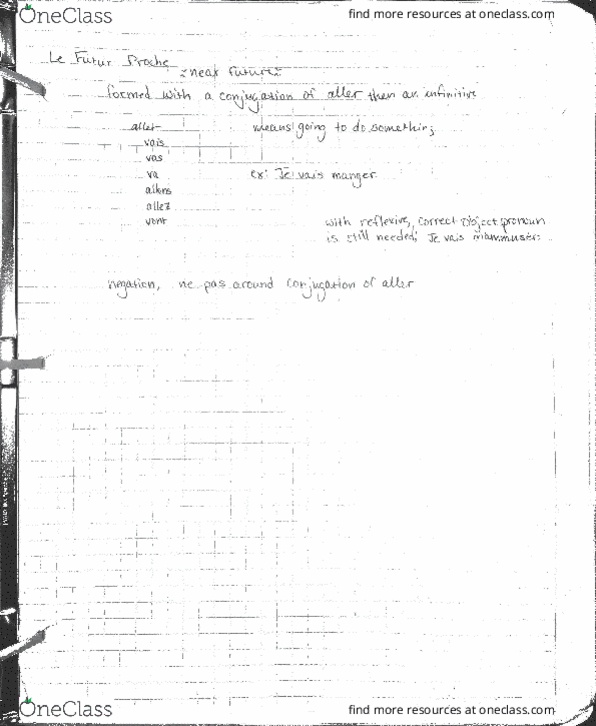 OneClass find more resources at oneclass.com
Le Futur Proche
=near future=
formed with a conjugation of aller then an infinitive
aller means going to do something
vais
vas
va ex: Je vais manger
allons
allez
vont with reflexive, correct object pronoun
is still needed; Je vais
negation, ne pas around conjugation of aller
OneClass find more resources at oneclass.com